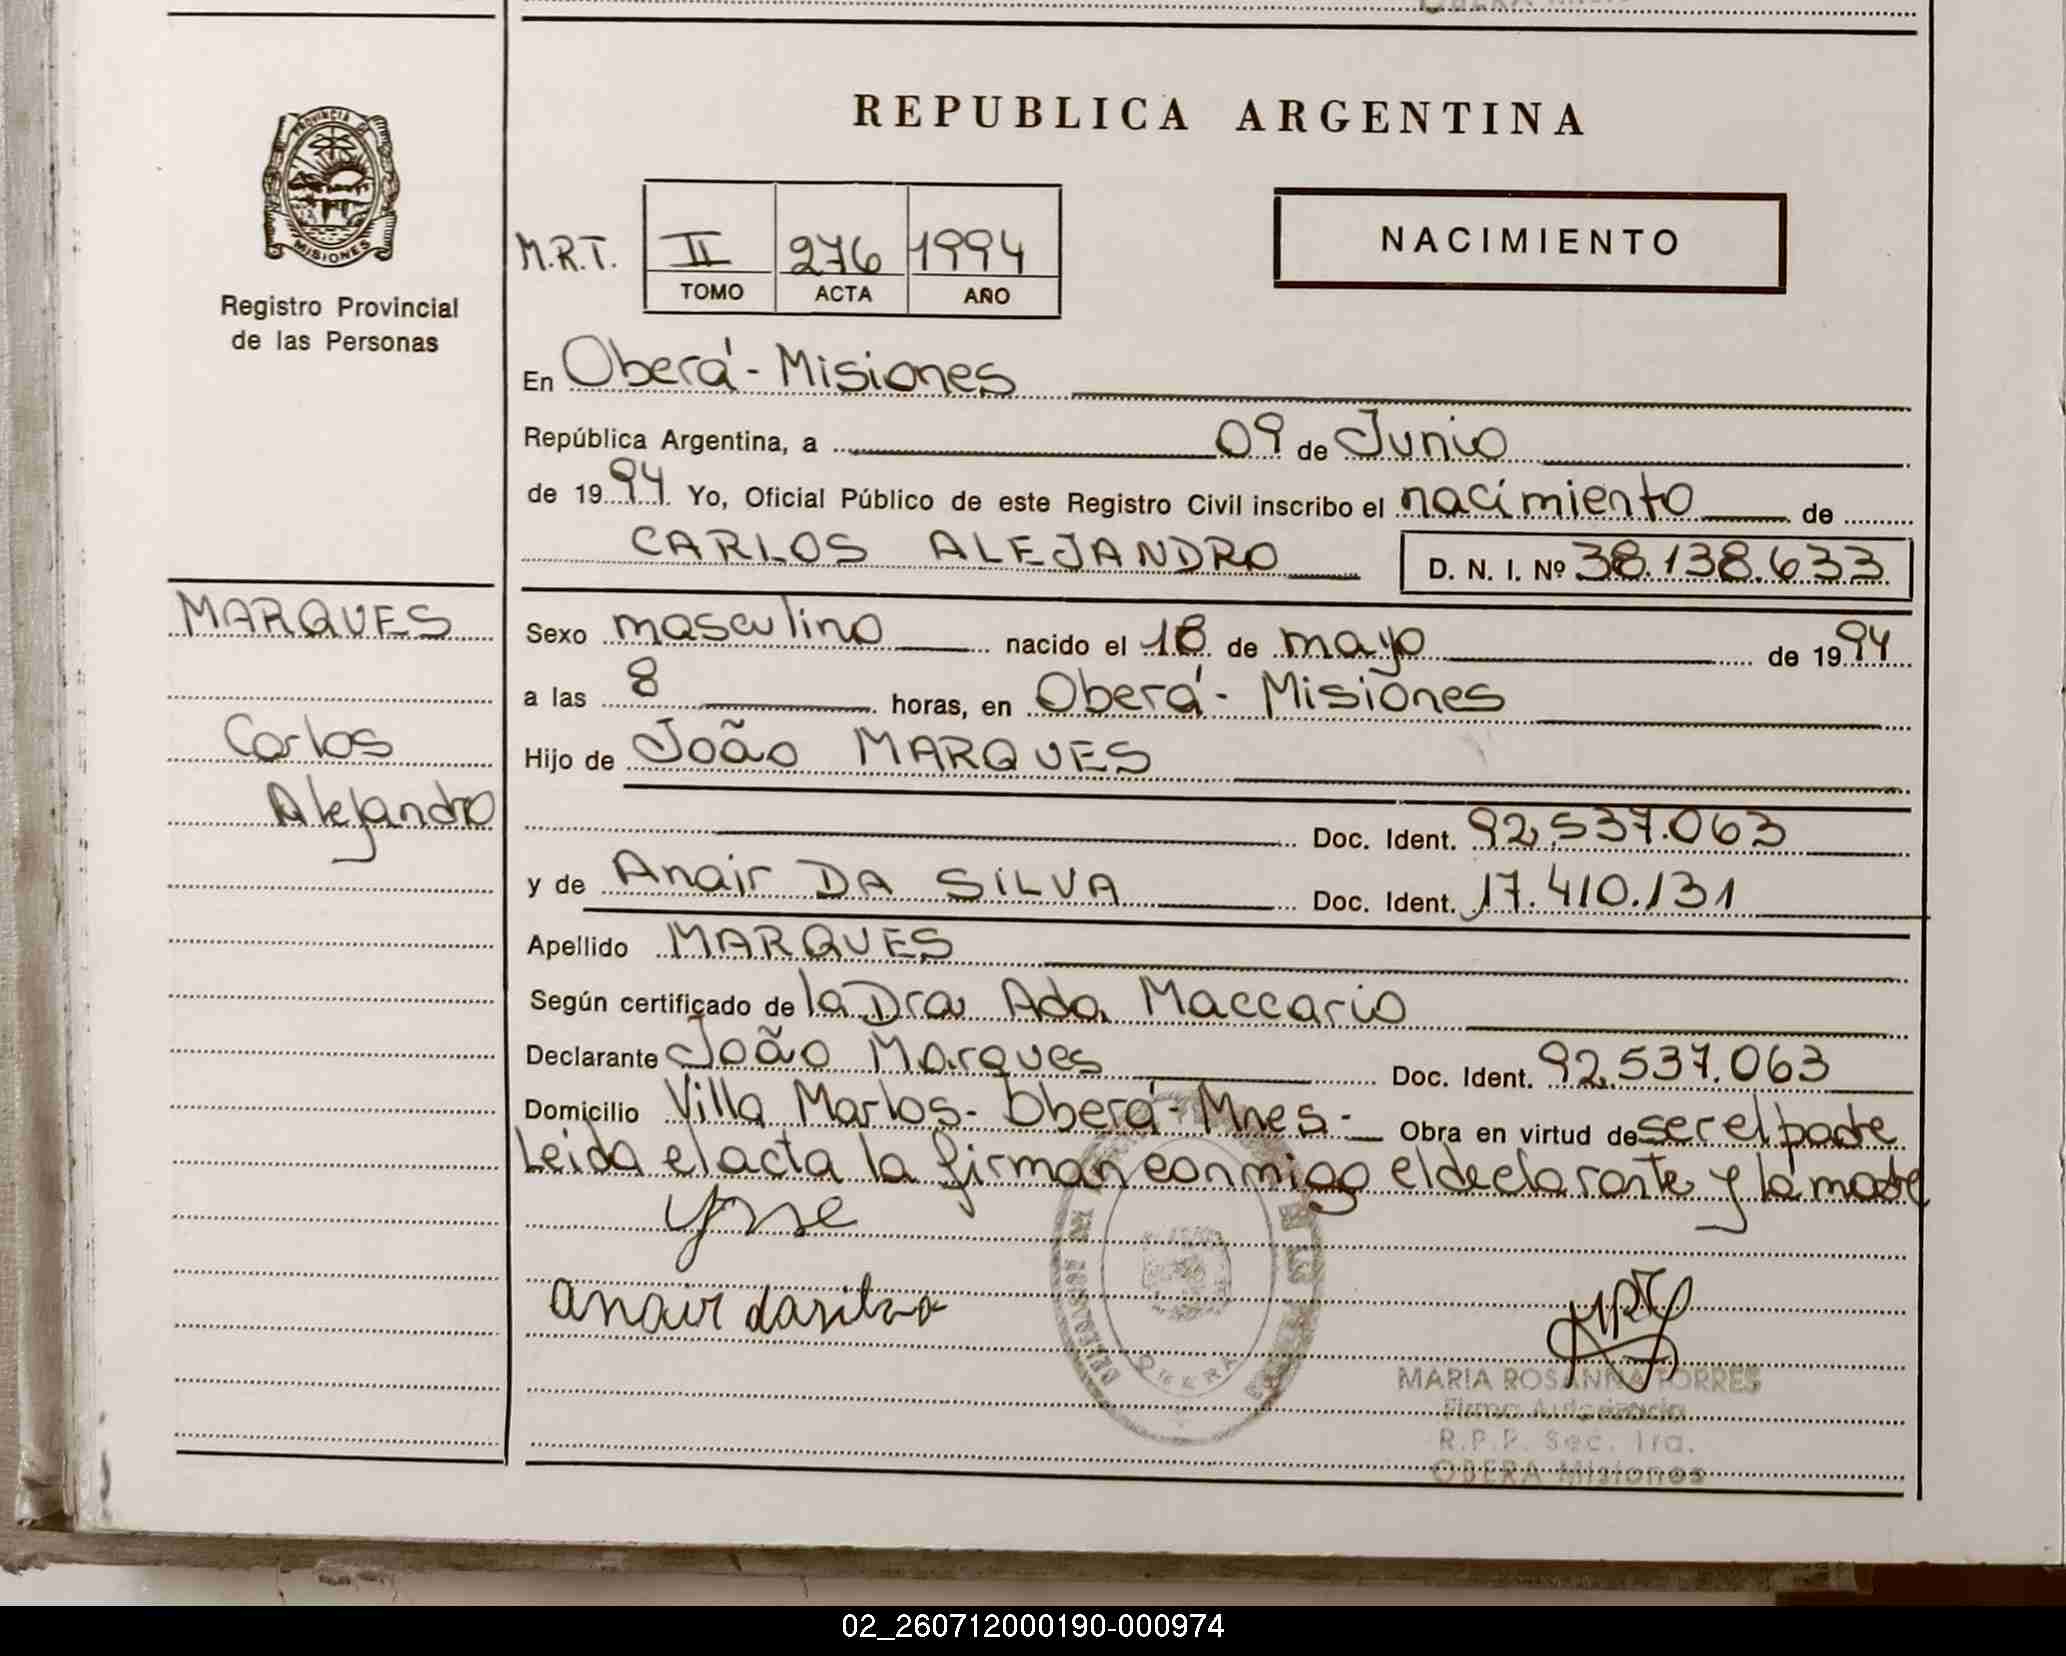 REPUBLICA ARGENTINA
PROVINCIA DE
MISIONES
Registro Provincial
de las Personas
M.R.T. II 276 1994
TOMO ACTA AÑO
NACIMIENTO
En Oberá - Misiones
República Argentina, a 09 de Junio
de 1994 Yo, Oficial Público de este Registro Civil inscribo el nacimiento de
CARLOS ALEJANDRO D. N. I. Nº 38.138.633
MARQUES
Carlos
Alejandro
Sexo masculino nacido el 18 de mayo de 1994
a las 8 horas, en Oberá - Misiones
Hijo de João MARQUES
Doc. Ident. 92.537.063
y de Anair DA SILVA Doc. Ident. 17.410.131
Apellido MARQUES
Según certificado de la Dra Ada Maccario
Declarante João Marques Doc. Ident. 92.537.063
Domicilio Villa Marlos - Oberá - Mnes - Obra en virtud de ser el padre
Leida el acta la firman conmigo el declarante y la madre
anair dasilva
OBERA
MARIA ROSANNA TORRES
Firma Autorizada
R.P.P. Sec. 1ra.
OBERA Misiones
02_260712000190-000974